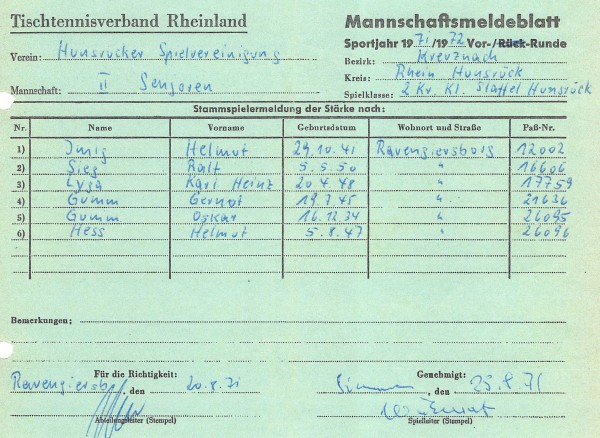 Tischtennisverband Rheinland
Mannschaftsmeldeblatt
Sportjahr 1971/1972 Vor-/Rück-Runde
Verein: Hunsrücker Spielvereinigung
Bezirk: Kreuznach
Kreis: Rhein Hunsrück
Mannschaft: II Senioren
Spielklasse: 2 Kr. Kl. Staffel Hunsrück
Stammspielermeldung der Stärke nach:
Nr. Name Vorname Geburtsdatum Wohnort und Straße Paß-Nr.
1) Imig Helmut 29.10.41 Ravengiersborg 12002
2) Sieg Ralf 5.5.50 " 16606
3) Lyga Karl Heinz 20.4.48 " 17759
4) Gumm Gernot 19.7.45 " 21636
5) Gumm Oskar 16.12.34 " 26095
6) Hess Helmut 5.8.47 " 26096
Bemerkungen:
Für die Richtigkeit: Genehmigt:
Ravengiersbg, den 20.8.71 , den 25.8.71
Abteilungsleiter (Stempel) Spielleiter (Stempel)